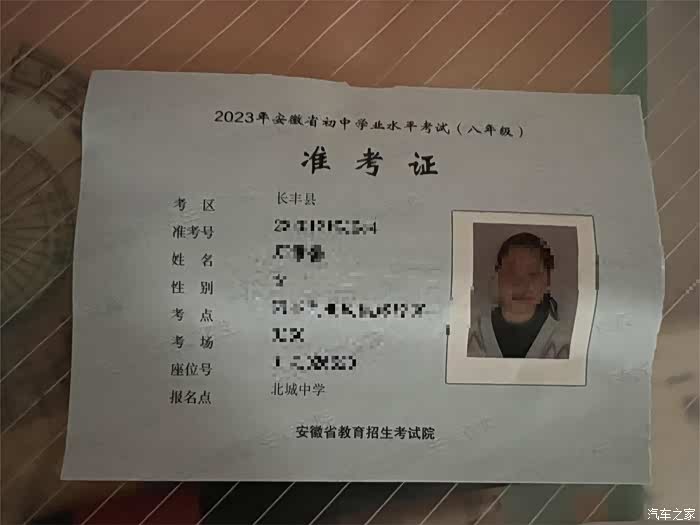 2023年安徽省初中学业水平考试(八年级)
准考证
考区 长丰县
准考号
姓名
性别
考点
考场
座位号
报名点 北城中学
安徽省教育招生考试院
汽车之家